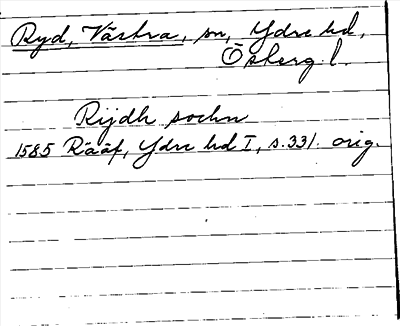 Ryd, Västra, sn, Ydre hd,
Österg l.
Rijdh sochn
1585 Rääf, Ydre hd I, s. 331. orig.